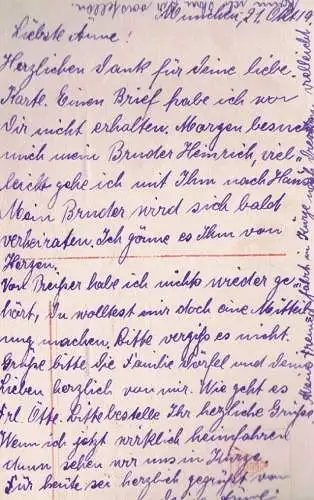 München, 21. Okt. 19
Liebste Änne!
Herzlichen Dank für Deine liebe
Karte. Einen Brief habe ich von
Dir nicht erhalten. Morgen besucht
mich mein Bruder Heinrich, viel-
leicht gehe ich mit Ihm nach Haus.
Mein Bruder wird sich bald
verheiraten. Ich gönne es Ihm von
Herzen.
Von habe ich nichts wieder ge-
hört, Du wolltest mir doch eine Mitteil-
ung machen, Bitte vergiß es nicht.
Grüße bitte die Familie Wörfel und Deine
Lieben herzlich von mir. Wie geht es
Frl. Otte. Bitte bestelle Ihr herzliche Grüße
Wenn ich jetzt wirklich heimfahren
dann sehen wir uns in Kürze.
Für heute sei herzlich gegrüßt von
in Kürze nach Dresden vielleicht